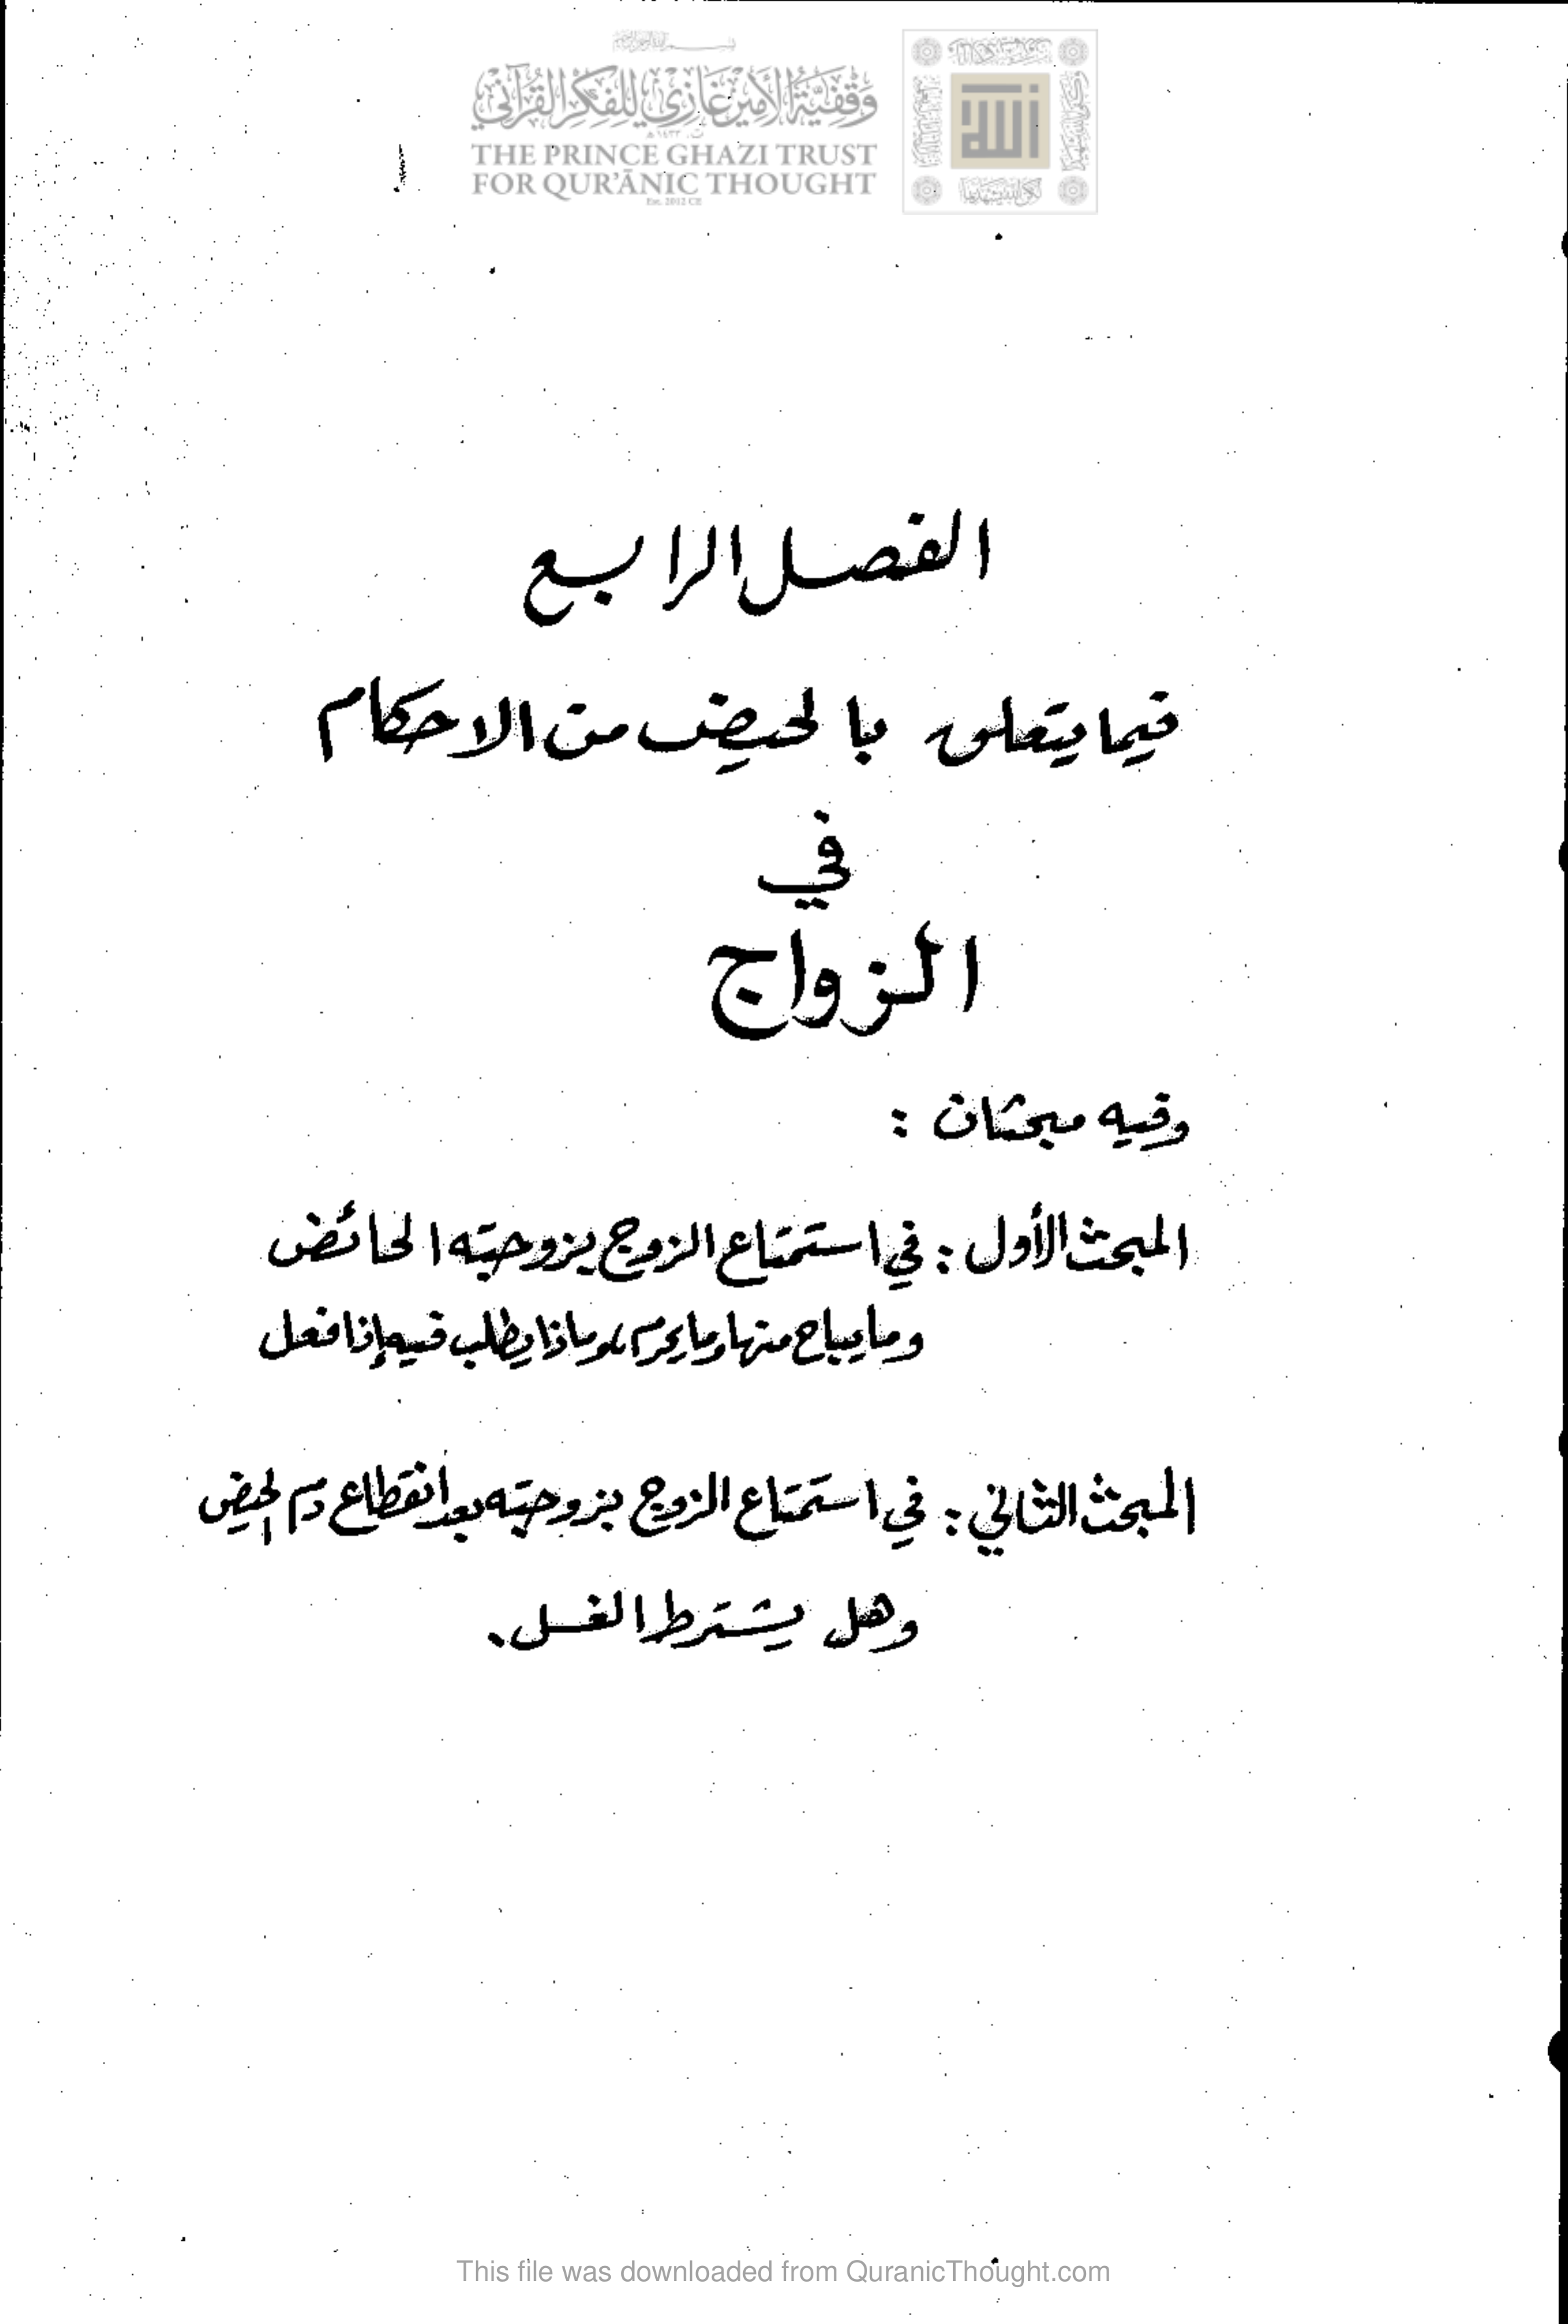 وَقْفِيَّةُ الأَمِيرِ غَازِي لِلْفِكْرِ القُرْآنِيّ
THE PRINCE GHAZI TRUST
FOR QUR'ĀNIC THOUGHT
Est. 2012 CE
الله
الفصل الرابع
فيما يتعلق بالحيض من الاحكام
في
الزواج
وفيه مبحثان :
المبحث الأول : في استمتاع الزوج بزوجته الحائض
وما يباح منها وما يحرم، وماذا يطلب فيه إذا فعل
المبحث الثاني : في استمتاع الزوج بزوجته بعد انقطاع دم الحيض
وهل يشترط الغسل.
This file was downloaded from QuranicThought.com